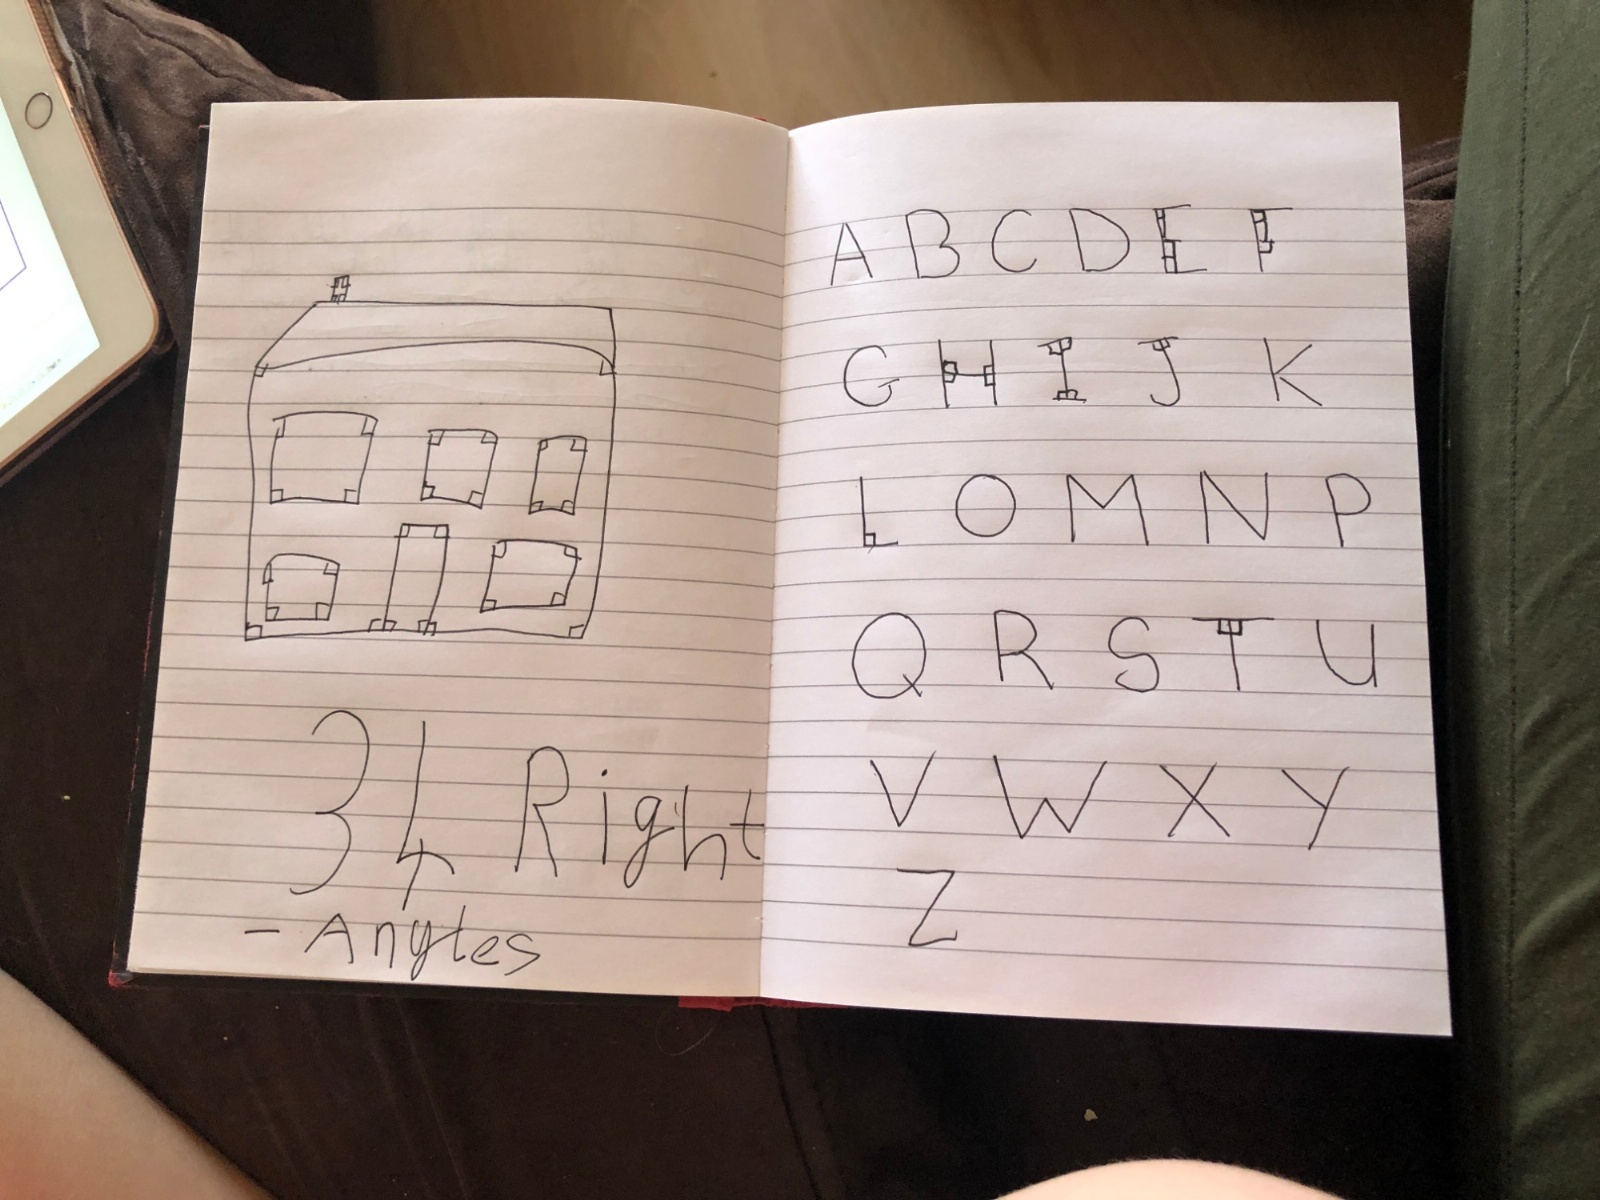 34 Right
- Angles
A B C D E F
G H I J K
L O M N P
Q R S T U
V W X Y
Z